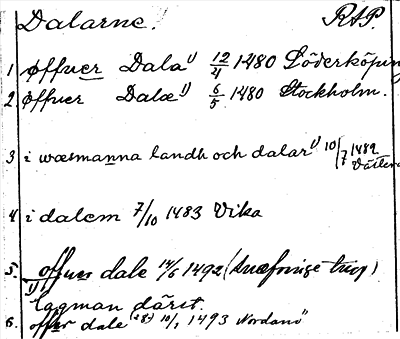 Dalarne. RAP.
1 øffuer Dala 1) 12/4 1480 Söderköping
2. øffuer Dalæ 1) 6/5 1480 Stockholm.
3 i wæsmanna landh och dalar 1) 10/7 1482
4 i dalem 7/10 1483 Vika
5. offuer dale 14/6 1492
1) Lagman därst.
6. offuer dale (28) 10/1 1493 Nordanö